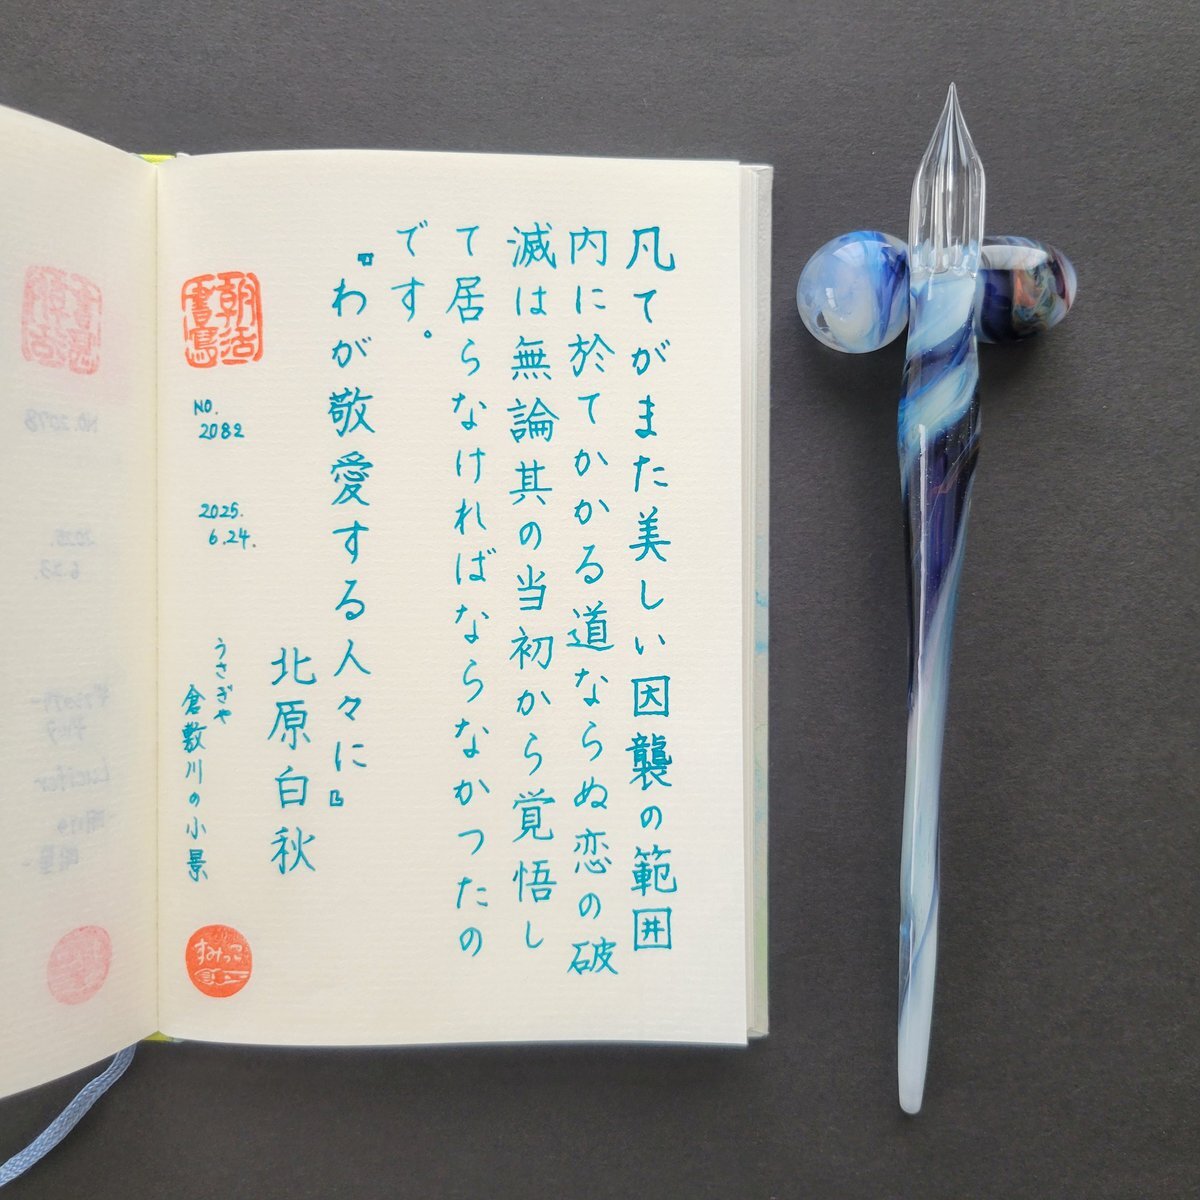 凡てがまた美しい因襲の範囲
内に於てかかる道ならぬ恋の破
滅は無論其の当初から覚悟し
て居らなければならなかつたの
です。
『わが敬愛する人々に』
北原白秋
朝活
書寫
NO.
2082
2025.
6.24.
うさぎや
倉敷川の小景
すみっこ
NO.2078
2025.
6.23.
Lucifer